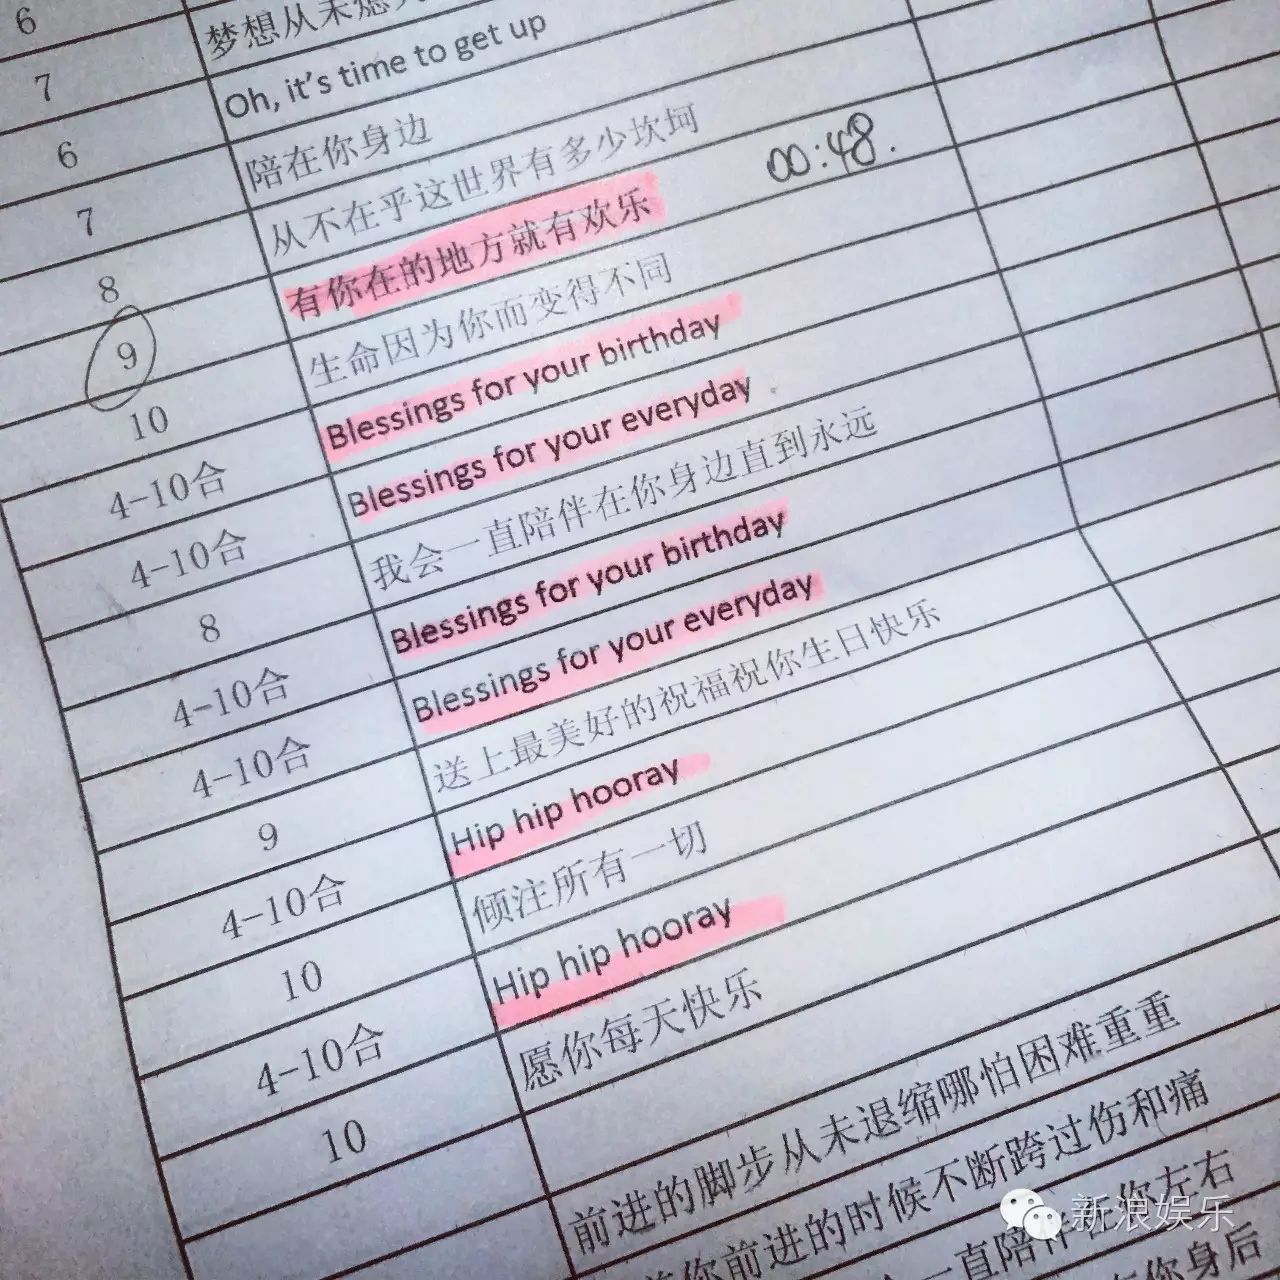 6 梦想从未熄
7 Oh, it's time to get up
6 陪在你身边
7 从不在乎这世界有多少坎坷 00:48.
8 有你在的地方就有欢乐
9 生命因为你而变得不同
10 Blessings for your birthday
4-10合 Blessings for your everyday
4-10合 我会一直陪伴在你身边直到永远
8 Blessings for your birthday
4-10合 Blessings for your everyday
4-10合 送上最美好的祝福祝你生日快乐
9 Hip hip hooray
4-10合 倾注所有一切
10 Hip hip hooray
4-10合 愿你每天快乐
10
前进的脚步从未退缩哪怕困难重重
你前进的时候不断跨过伤和痛
一直陪伴在你左右
你身后
新浪娱乐